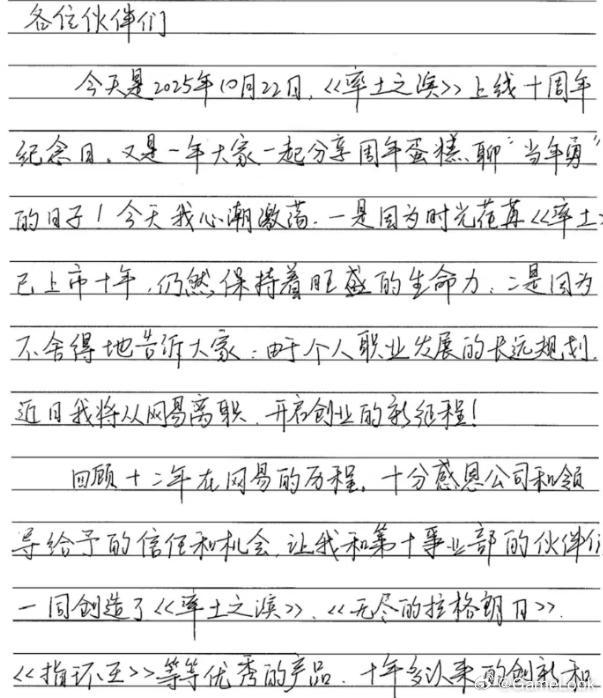 各位伙伴们
今天是2025年10月22日,《率土之滨》上线十周年
纪念日,又是一年大家一起分享周年蛋糕、聊“当年勇”
的日子!今天我心潮激荡,一是因为时光荏苒《率土
已上市十年,仍然保持着旺盛的生命力,二是因为
不舍得地告诉大家:由于个人职业发展的长远规划,
近日我将从网易离职,开启创业的新征程!
回顾十二年在网易的历程,十分感恩公司和领
导给予的信任和机会,让我和第十事业部的伙伴们
一同创造了《率土之滨》、《无尽的拉格朗日》、
《指环王》等等优秀的产品。十年多以来的创新和
@GameLook